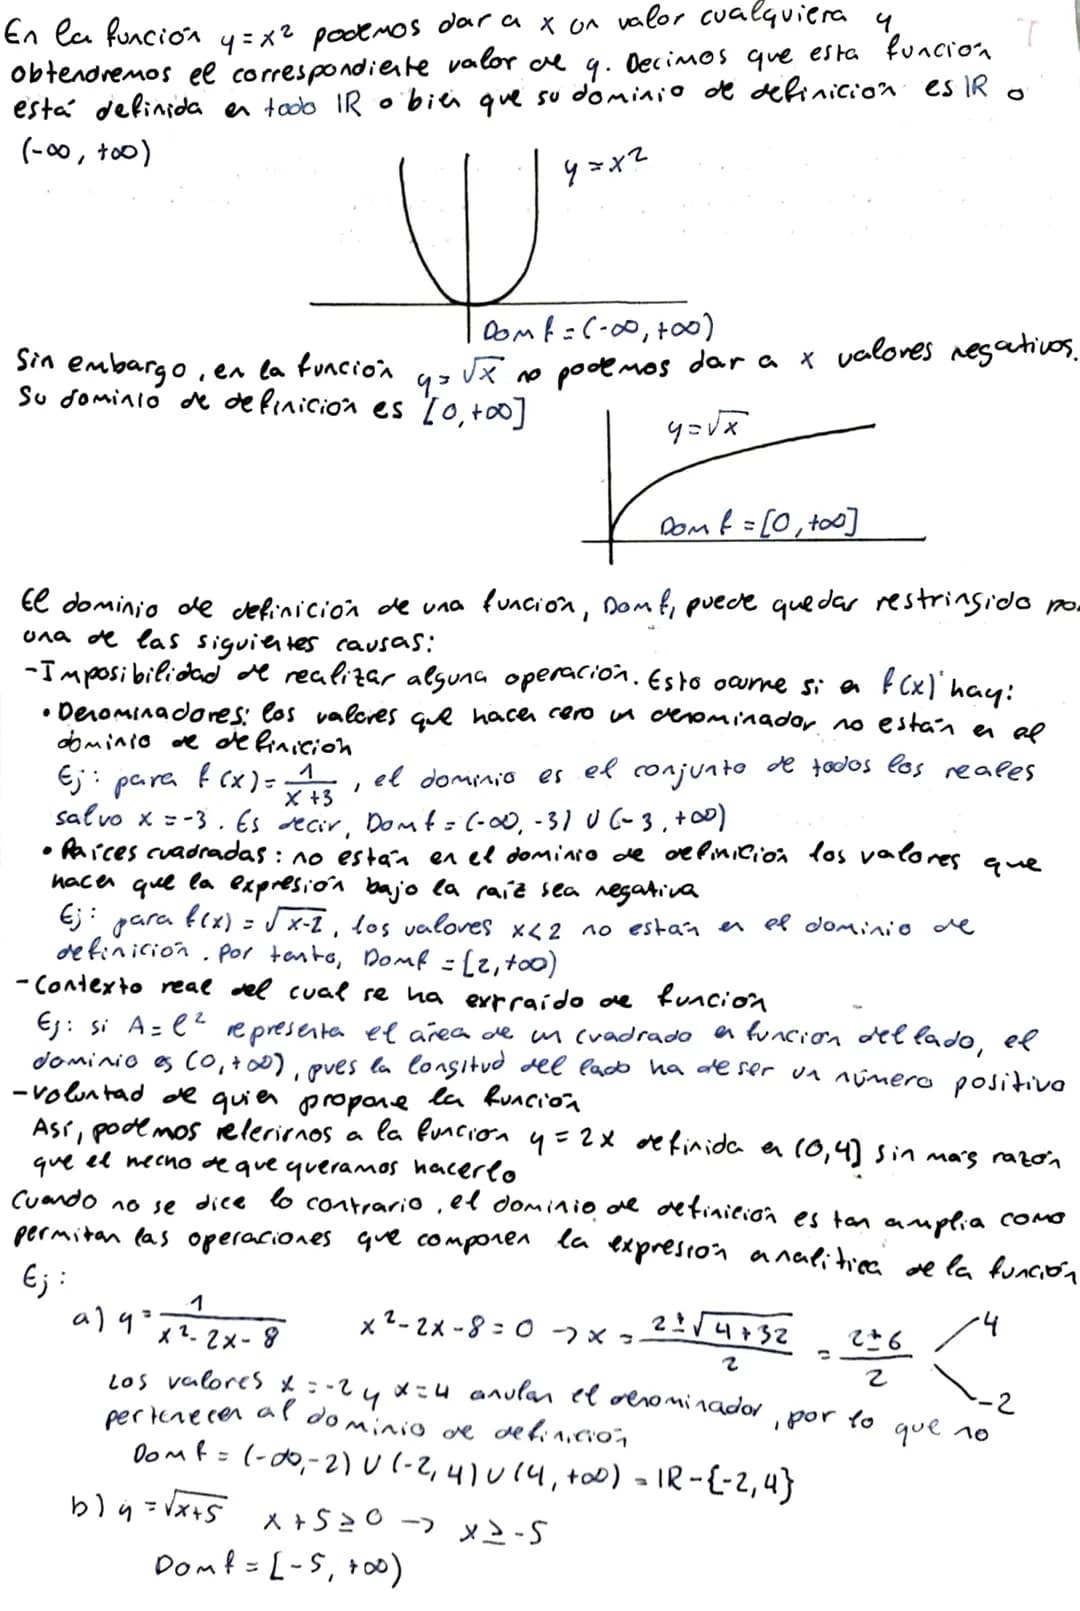 En la función y=x² podemos dar a x un valor cualquiera y
obtendremos el correspondiente valor de y. Decimos que esta función
está definida en todo ℝ o bien que su dominio de definición es ℝ o
(-∞, +∞)
y=x²
Dom f = (-∞, +∞)
Sin embargo, en la función y=√x no podemos dar a x valores negativos.
Su dominio de definición es [0,+∞]
y=√x
Dom f = [0,+∞]
El dominio de definición de una función, Dom f, puede quedar restringido por
una de las siguientes causas:
-Imposibilidad de realizar alguna operación. Esto ocurre si en f(x) hay:
• Denominadores: los valores que hacen cero un denominador no están en el
dominio de definición
Ej: para f(x)= 1/(x+3), el dominio es el conjunto de todos los reales
salvo x=-3. Es decir, Dom f = (-∞, -3) ∪ (-3, +∞)
• Raíces cuadradas: no están en el dominio de definición los valores que
hacen que la expresión bajo la raíz sea negativa
Ej: para f(x) = √x-2, los valores x<2 no están en el dominio de
definición. Por tanto, Dom f = [2,+∞)
-Contexto real del cual se ha extraído de función
Ej: si A=l² representa el área de un cuadrado en función del lado, el
dominio es (0,+∞), pues la longitud del lado ha de ser un número positivo
-Voluntad de quien propone la función
Así, podemos referirnos a la función y=2x definida en (0,4] sin más razón
que el hecho de que queramos hacerlo
Cuando no se dice lo contrario, el dominio de definición es tan amplia como
permitan las operaciones que componen la expresión analítica de la función
Ej:
a) y= 1/(x²-2x-8) x²-2x-8=0 → x = (2±√4+32)/2 = (2±6)/2 4 -2
Los valores x=-2 y x=4 anulan el denominador, por lo que no
pertenecen al dominio de definición
Dom f = (-∞,-2) ∪ (-2,4) ∪ (4,+∞) = ℝ-{-2,4}
b) y=√x+5 x+5≥0 → x≥-5
Dom f = [-5, +∞)